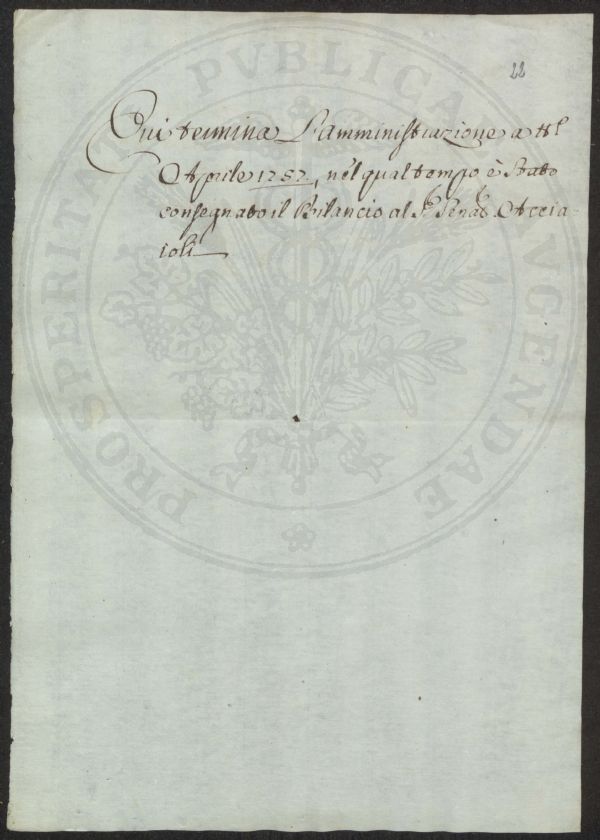 22
Qui termina L'Amministrazione a tt.º
Aprile 1757, nel qual tempo è Stato
consegnato il Bilancio al Sr. Senat. Accia-
ioli
PROSPERITATI PVBLICAE AVGENDAE